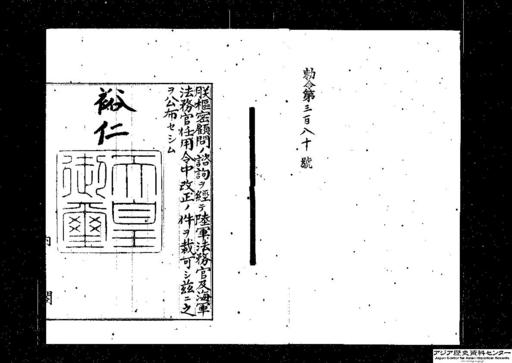 勅令第三百八十號
朕樞密顧問ノ諮詢ヲ經テ陸軍法務官及海軍
法務官任用令中改正ノ件ヲ裁可シ茲ニ之
ヲ公布セシム
裕仁
天皇
御璽
内閣
アジア歴史資料センター
Japan Center for Asian Historical Records